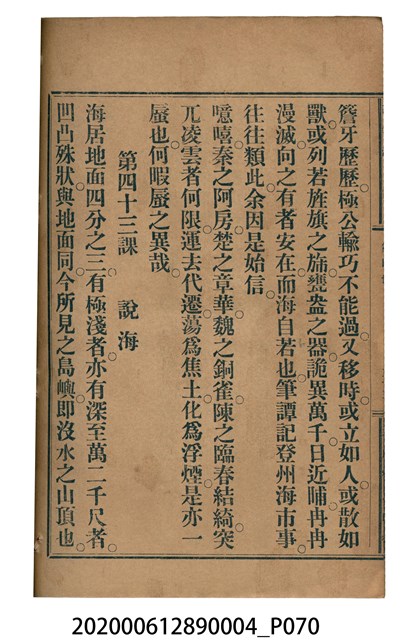 簷牙歷歷極公輸巧不能過又移時或立如人或散如
獸或列若旌旗之旆甕盎之器詭異萬千日近晡冉冉
漫滅向之有者安在而海自若也筆譚記登州海市事
往往類此余因是始信
噫嘻秦之阿房楚之章華魏之銅雀陳之臨春結綺突
兀凌雲者何限運去代遷蕩爲焦土化爲浮煙是亦一
蜃也何暇蜃之異哉
第四十三課 說海
海居地面四分之三有極淺者亦有深至萬二千尺者
凹凸殊狀與地面同今所見之島嶼卽沒水之山頂也
202000612890004_P070